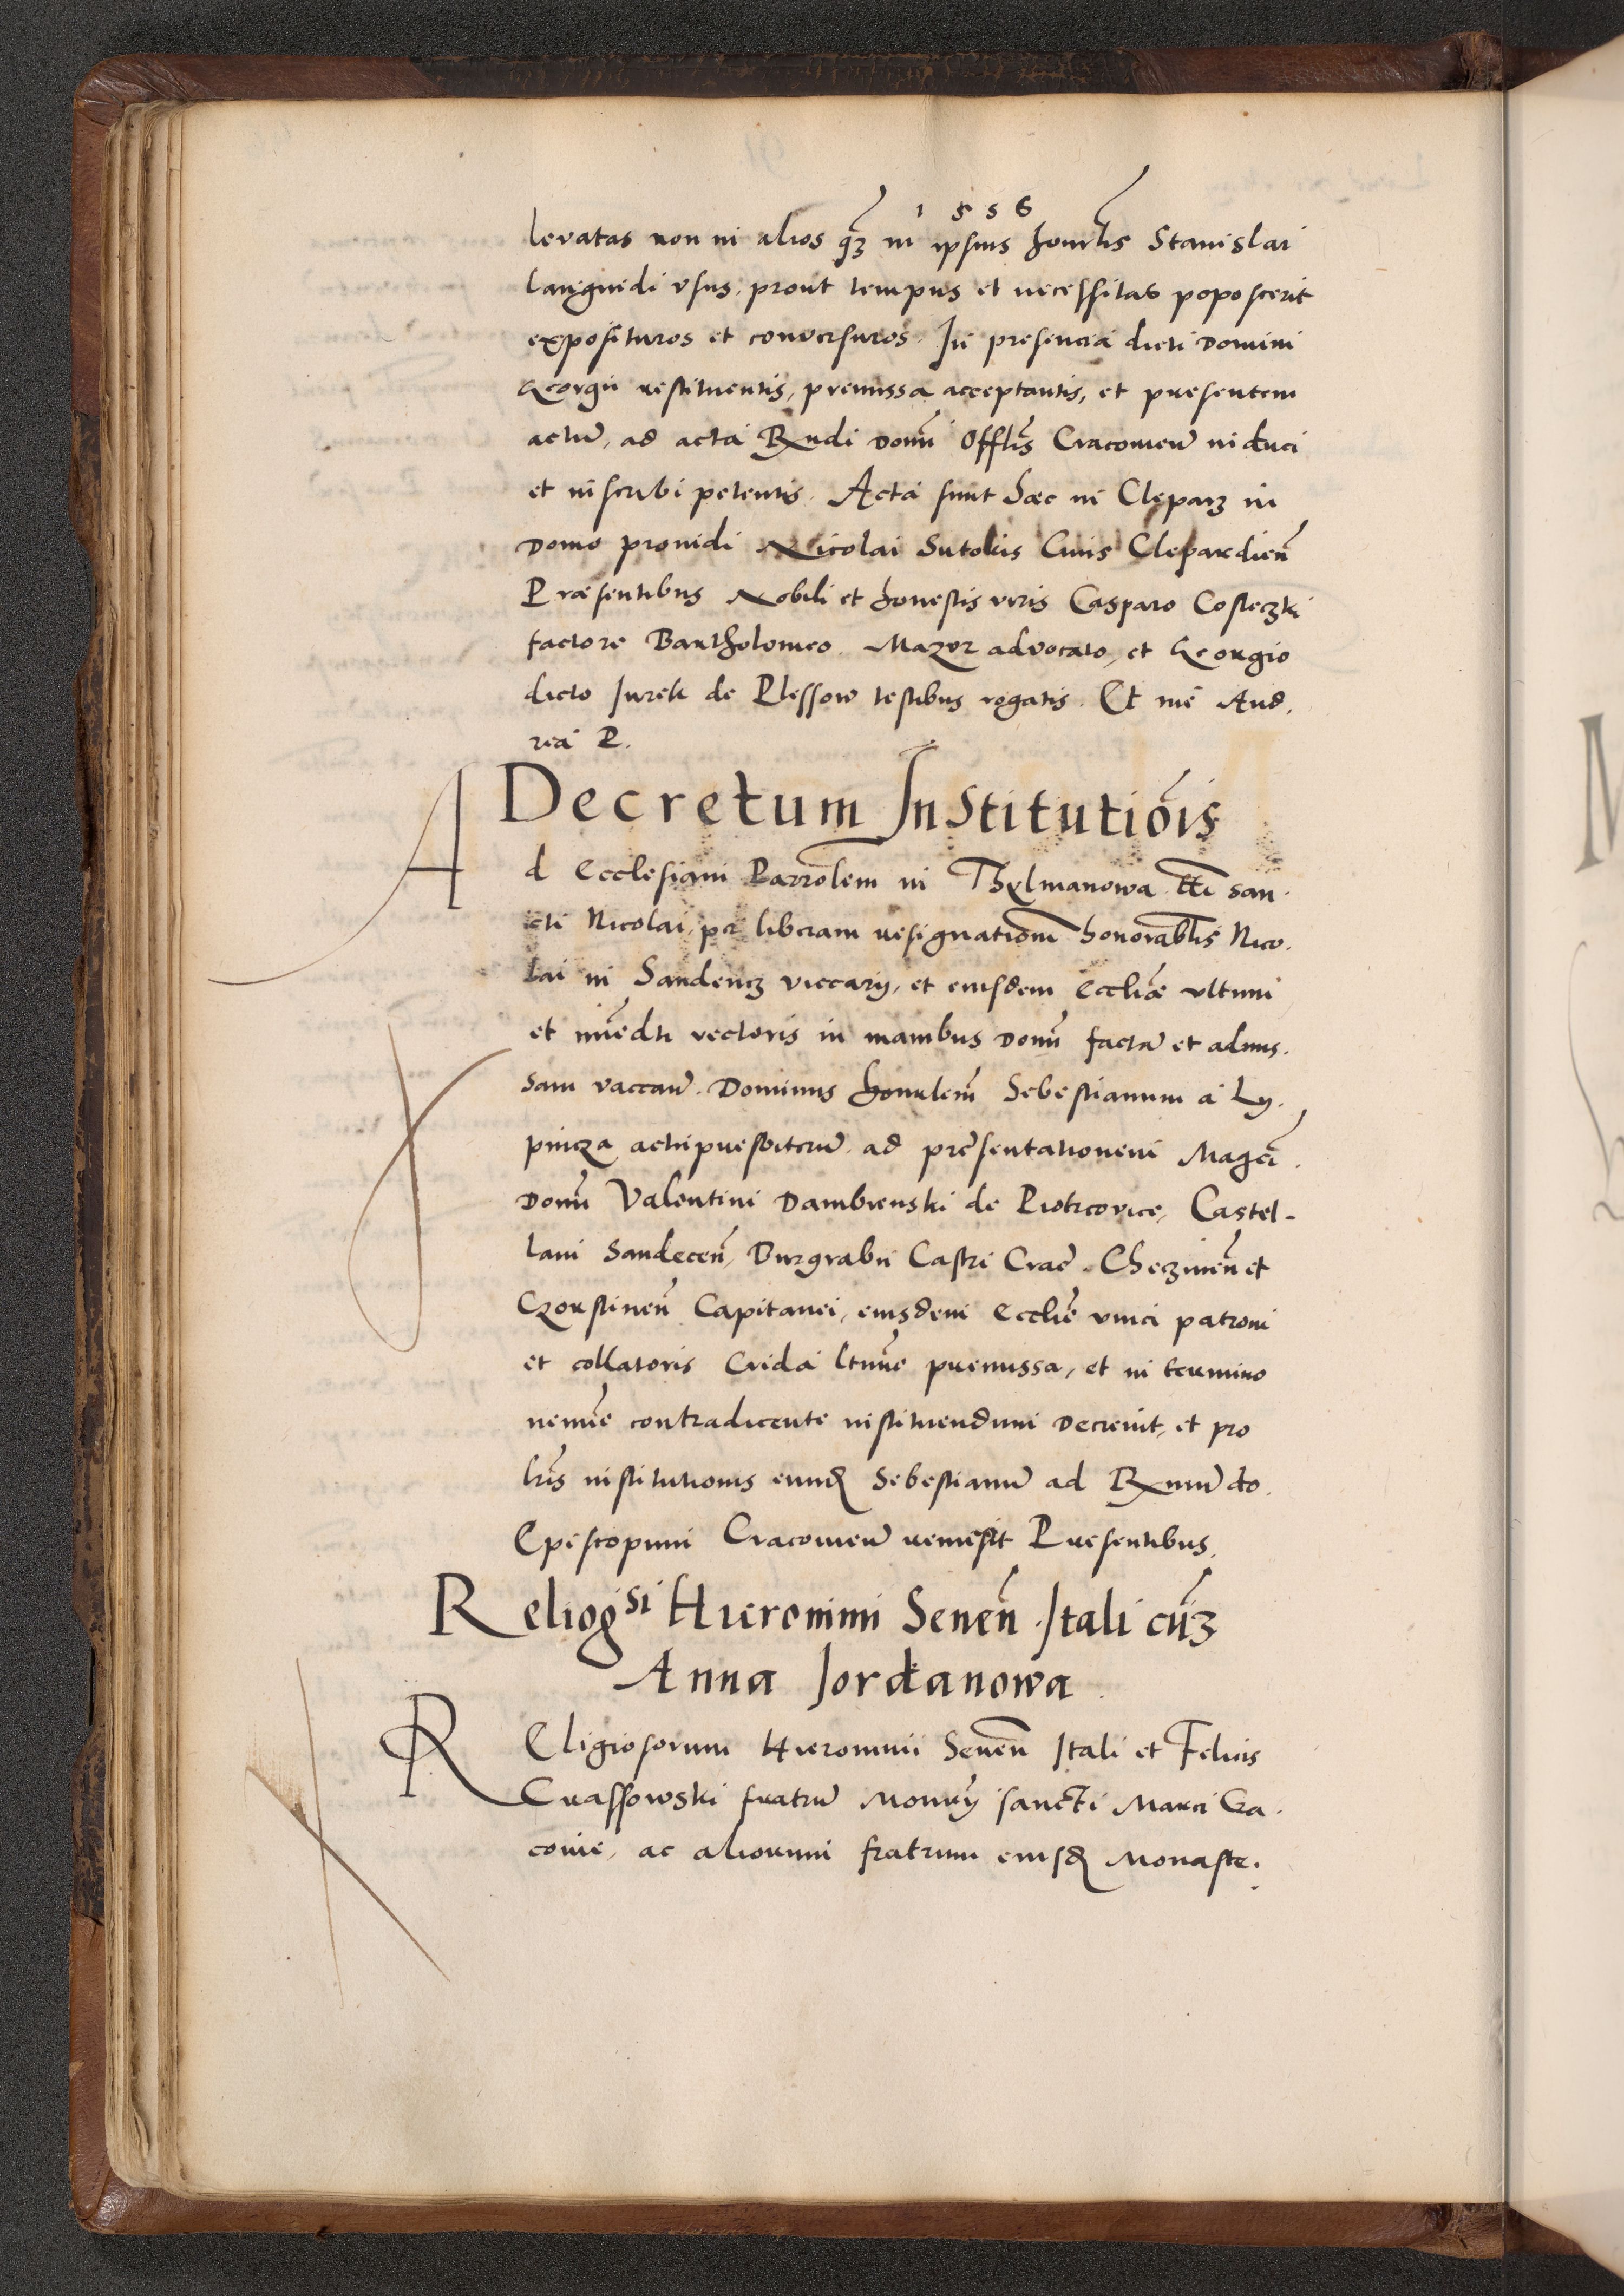 1556
levatas non in alios qꝫ in ipsius honorlis Stanislai
languidi usus, prout tempus et necessitas poposcerit
exposituros et conversuros. In presencia dicti Domini
Georgii restituentis, premissa acceptantis, et presentem
actū, ad acta Rndi Domi Offlis Cracovien̄ induci
et inscribi petentis. Acta sunt haec in Cleparz in
Domo providi Nicolai Sutokis Civis Clepardien̄
Praesentibus Nobili et honestis viris Casparo Costeczki
factore Bartholomeo Mazor advocato, et Georgio
dicto Jurek de Plessow testibus rogatis. Et me And.
rea P.
Decretum Institutiōis
Ad Ecclesiam Parrōlem in Thylmanowa tti san.
cti Nicolai, per liberam resignationē honorablis Nico.
lai in Sandencz viccarij, et eiusdem Eccliae ultimi
et imēdti rectoris in manibus Domī factā et admis.
sam vaccañ. Dominus honorlem Sebestianum a Ly.
pincza achipresbiterū. ad presentationem Magci.
Domī Valentini Dambienski de Piotrcovice, Castel-
lani Sandecen̄, Burgrabii Castri Crac̄. Checzinen̄ et
Czorstinen̄ Capitanei, eiusdem Eccliē unici patroni
et collatoris Crida ltīme premissa, et in termino
nemīe contradicente instituendum Decrevit, et pro
lrīs institutionis eund Sebestianū ad Rxmū do.
Episcopum Cracovien̄ remisit Presentibus.
Religisi Hieronimi Senen̄ Itali cūꝫ
Anna Jordanowa
REligiosorum Hieronimi Senen̄ Itali et Felicis
Crassowski fratrū Monrij sancti Marci Cra.
covie, ac aliorum fratrum eiusd Monaste.